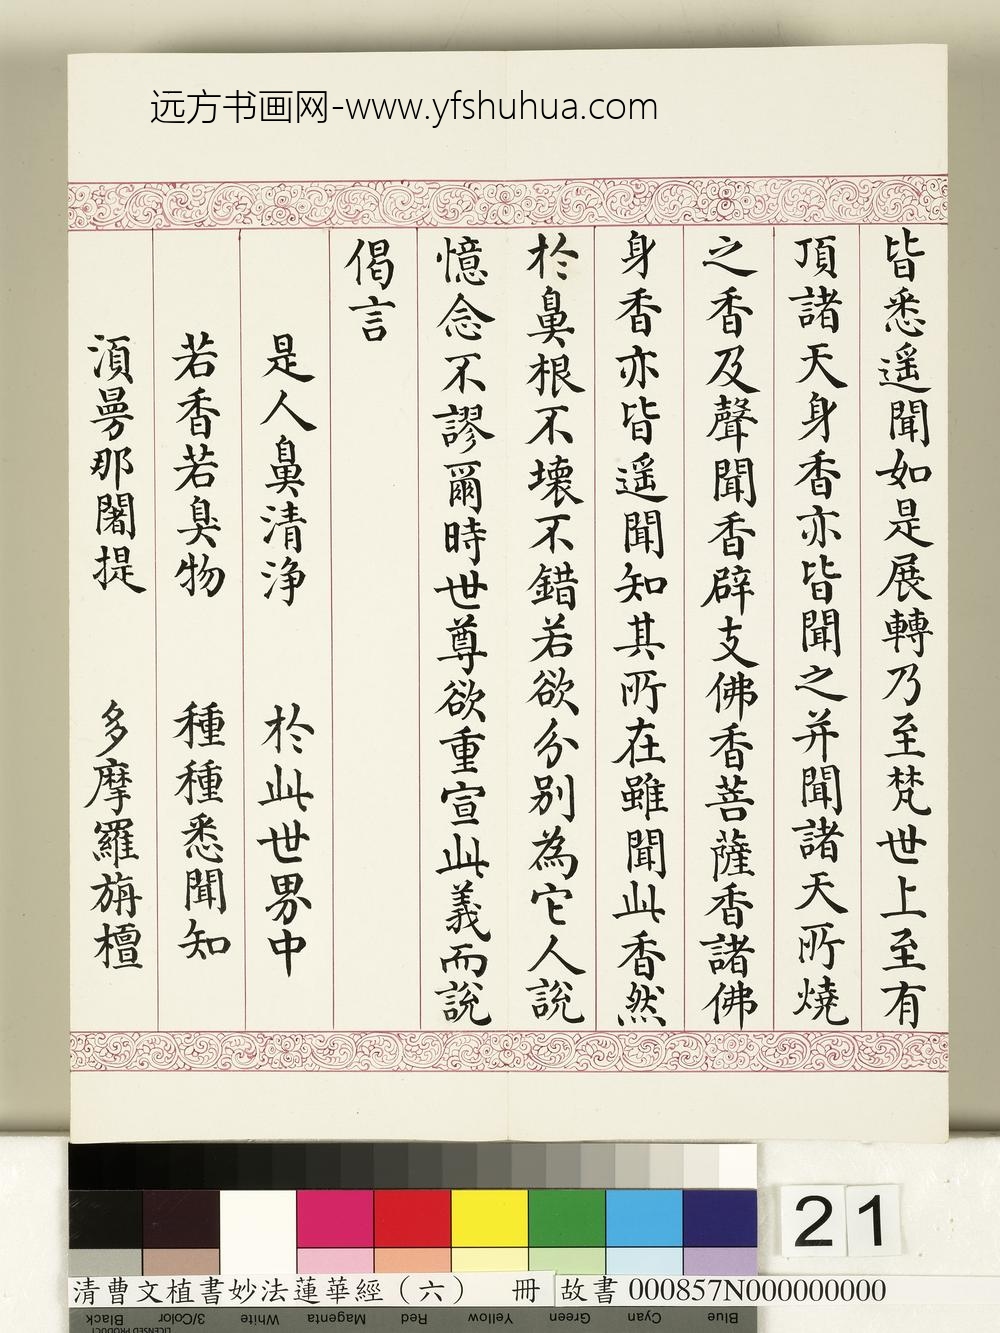 远方书画网-www.yfshuhua.com
皆悉遥聞如是展轉乃至梵世上至有
頂諸天身香亦皆聞之并聞諸天所燒
之香及聲聞香辟支佛香菩薩香諸佛
身香亦皆遥聞知其所在雖聞此香然
於鼻根不壞不錯若欲分別為它人說
憶念不謬爾時世尊欲重宣此義而說
偈言
是人鼻清浄 於此世界中
若香若臭物 種種悉聞知
湏曼那闍提 多摩羅旃檀
21
清曹文植書妙法蓮華經（六） 冊 故書 000857N000000000
Black 3/Color White Magenta Red Yellow Green Cyan Blue
LICENSED PRODUCT